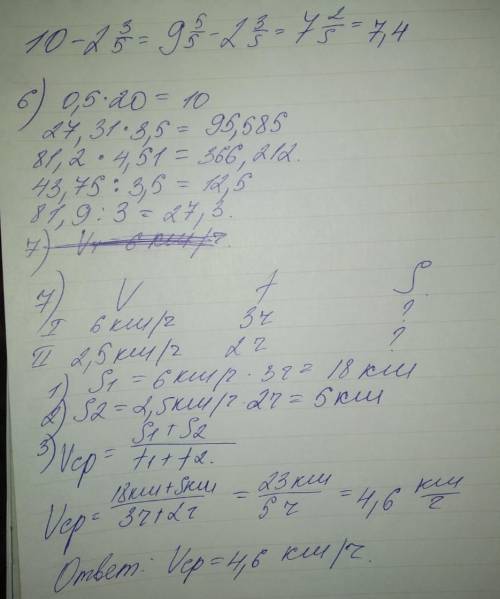 10 - 2 3/5 = 9 5/5 - 2 3/5 = 7 2/5 = 7,4
6) 0,5 · 20 = 10
27,31 · 3,5 = 95,585
81,2 · 4,51 = 366,212.
43,75 : 3,5 = 12,5
81,9 : 3 = 27,3.
7)
7) V t S
I 6 км/ч 3ч ?
II 2,5 км/ч 2ч ?
1) S1 = 6 км/ч · 3ч = 18 км
2) S2 = 2,5 км/ч · 2ч = 5 км
3) Vср = S1 + S2 / t1 + t2.
Vср = 18км+5км / 3ч+2ч = 23км / 5ч = 4,6 км/ч
Ответ: Vср = 4,6 км/ч.